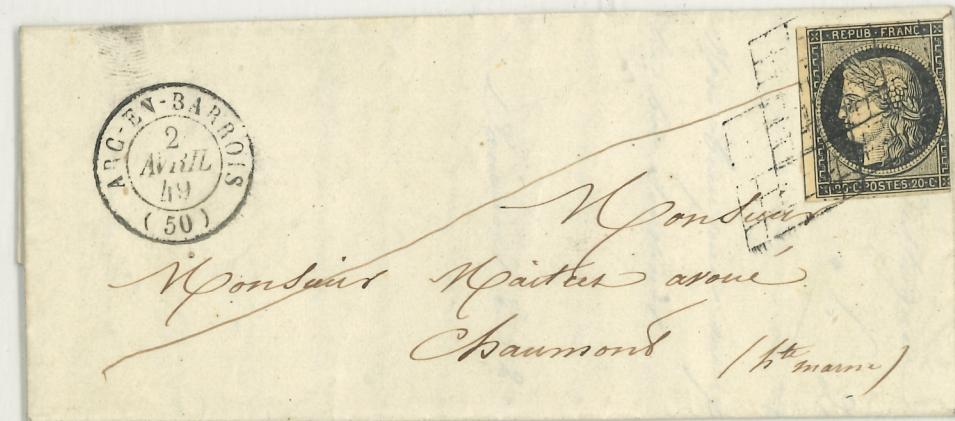 ARC-EN-BARROIS
2
AVRIL
49
(50)
REPUB·FRANC
20·C·POSTES·20·C
Monsieur
Monsieur Maitret avoué
Chaumont (hte marne)